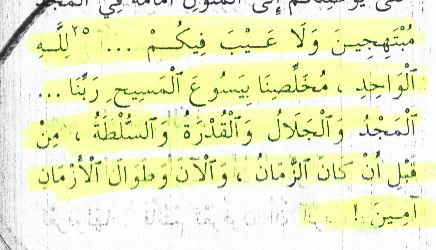 إلى المثول أمامه في المجد
مُبْتَهِجِينَ وَلَا عَيْبَ فِيكُمْ ... ٢٥ لِلَّهِ
الْوَاحِدِ ، مُخَلِّصِنَا بِيَسُوعَ الْمَسِيحِ رَبِّنَا ...
الْمَجْدُ وَالْجَلَالُ وَالْقُدْرَةُ وَالسُّلْطَةُ ، مِنْ
قَبْلِ أَنْ كَانَ الزَّمَانُ ، وَالْآنَ وَطَوَالَ الْأَزْمَانِ
آمِينَ !